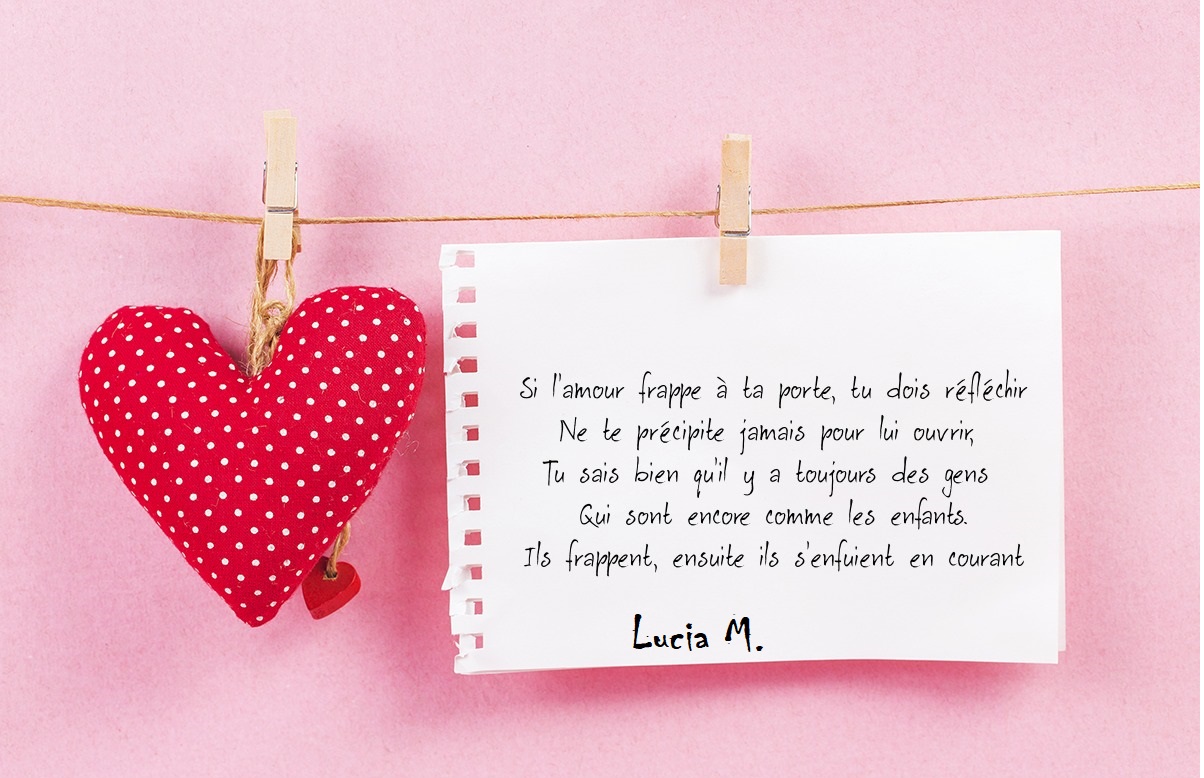 Si l'amour frappe à ta porte, tu dois réfléchir
Ne te précipite jamais pour lui ouvrir,
Tu sais bien qu'il y a toujours des gens
Qui sont encore comme les enfants.
Ils frappent, ensuite ils s'enfuient en courant
Lucia M.